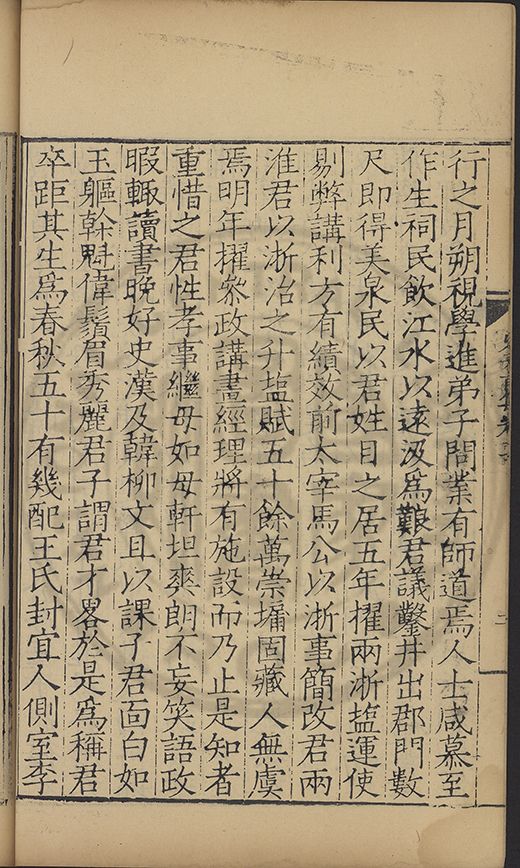 行之月朔視學進弟子問業有師道焉人士咸慕至
作生祠民飲江水以遠汲爲艱君議鑿井出郡門數
尺即得美泉民以君姓目之居五年擢兩浙塩運使
剔弊講利方有績效前太宰馬公以浙事簡改君兩
淮君以浙治之升塩賦五十餘萬崇墉固藏人無虞
焉明年擢叅政講畫經理將有施設而乃止是知者
重惜之君性孝事繼母如母軒坦爽朗不妄笑語政
暇輙讀書晚好史漢及韓柳文且以課子君面白如
玉軀幹魁偉鬚眉秀麗君子謂君才畧於是爲稱君
卒距其生爲春秋五十有幾配王氏封宜人側室李
二